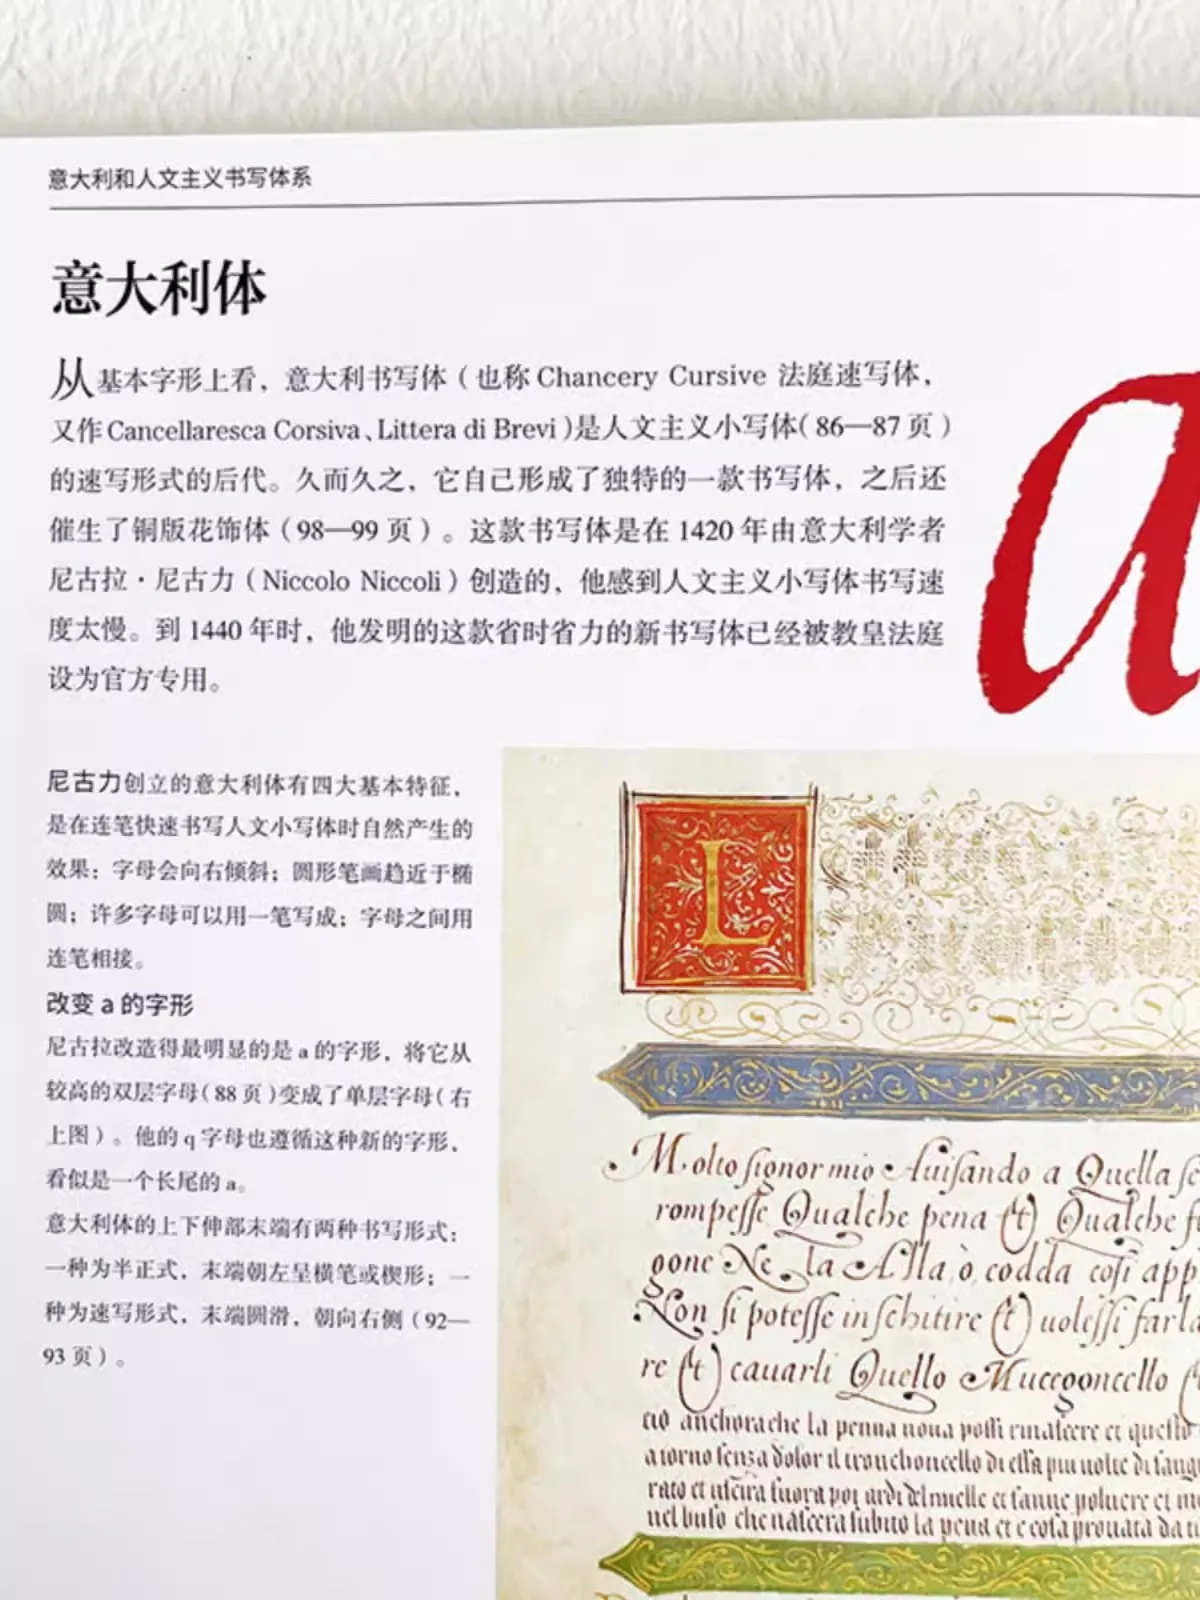 意大利和人文主义书写体系
意大利体
从基本字形上看，意大利书写体（也称 Chancery Cursive 法庭速写体，
又作 Cancellaresca Corsiva、Littera di Brevi）是人文主义小写体（86—87 页）
的速写形式的后代。久而久之，它自己形成了独特的一款书写体，之后还
催生了铜版花饰体（98—99 页）。这款书写体是在 1420 年由意大利学者
尼古拉·尼古力（Niccolo Niccoli）创造的，他感到人文主义小写体书写速
度太慢。到 1440 年时，他发明的这款省时省力的新书写体已经被教皇法庭
设为官方专用。
a
尼古力创立的意大利体有四大基本特征，
是在连笔快速书写人文小写体时自然产生的
效果：字母会向右倾斜；圆形笔画趋近于椭
圆；许多字母可以用一笔写成；字母之间用
连笔相接。
改变 a 的字形
尼古拉改造得最明显的是 a 的字形，将它从
较高的双层字母（88 页）变成了单层字母（右
上图）。他的 q 字母也遵循这种新的字形，
看似是一个长尾的 a。
意大利体的上下伸部末端有两种书写形式：
一种为半正式，末端朝左呈横笔或楔形；一
种为速写形式，末端圆滑，朝向右侧（92—
93 页）。
L
Molto signor mio Auisando a Quella se
rompesse Qualche pena (et) Qualche fi
gone Ne la Alla, ò, codda cosi app
Non si potesse inschitire (et) uolessi farla
re (et) cauarli Quello Muccgoncello
ciò anchorache la penna noua possi rinascere et questo
nel buso che nascera subito la pena et e cosa prouata da